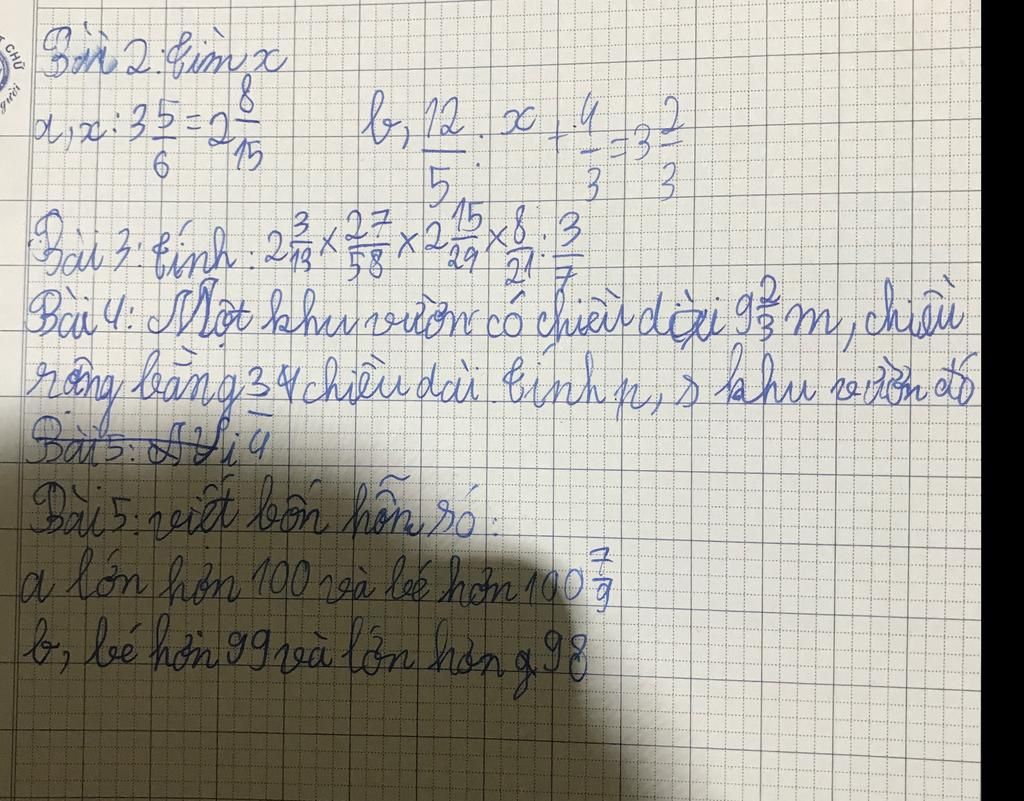 CHỮ
người
Bài 2: tìm x
a, x : 3 5/6 = 2 8/15 b, 12/5 : x + 4/3 = 3 2/3
Bài 3: tính: 2 3/13 x 27/58 x 2 15/29 x 8/21 : 3/7
Bài 4: Một khu vườn có chiều dài 9 2/3 m, chiều
rộng bằng 3/4 chiều dài. tính p, s khu vườn đó
Bài 5:
Bài 5: viết bốn hỗn số:
a lớn hơn 100 và bé hơn 100 7/9
b, bé hơn 99 và lớn hơn 98